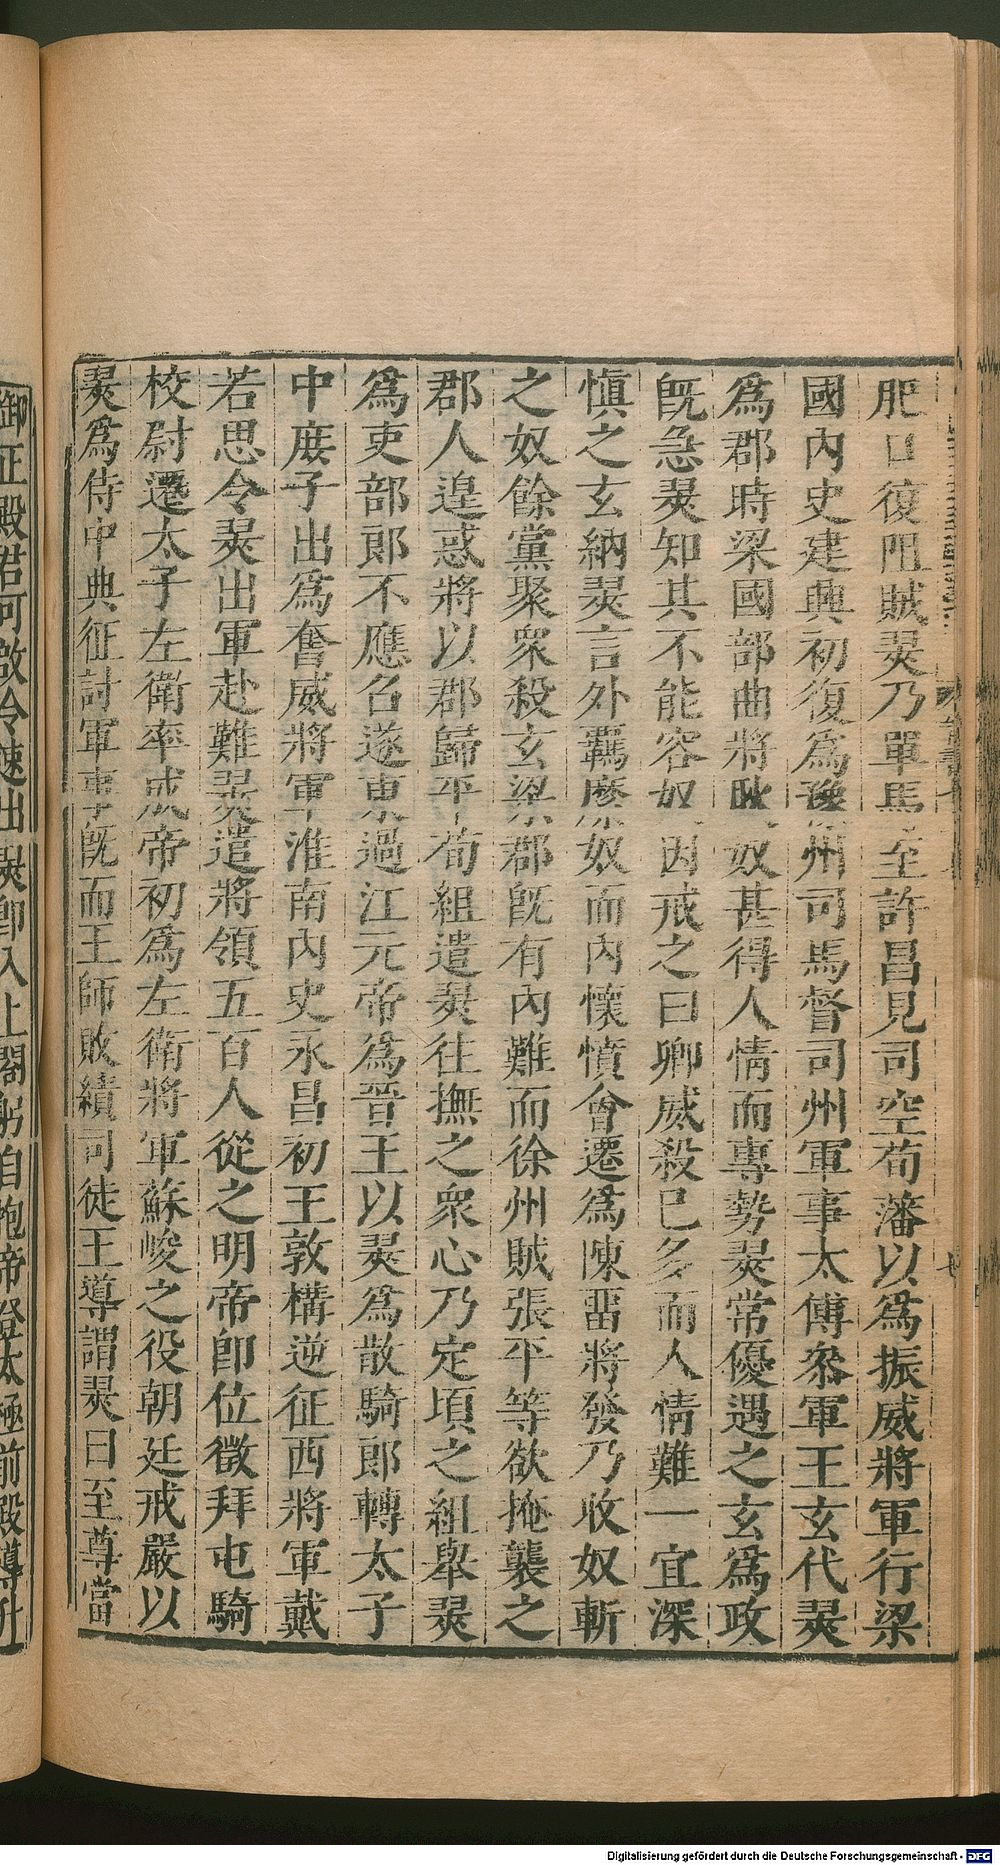 肥口復阻賊翜乃單馬至許昌見司空荀藩以爲振威將軍行梁
國內史建興初復爲豫州司馬督司州軍事太傅叅軍王玄代翜
爲郡時梁國部曲將耿奴甚得人情而專勢翜常優遇之玄爲政
旣急翜知其不能容奴因戒之曰卿威殺已多而人情難一宜深
愼之玄納翜言外羈縻奴而內懷憤會遷爲陳畱將發乃收奴斬
之奴餘黨聚衆殺玄梁郡旣有內難而徐州賊張平等欲掩襲之
郡人遑惑將以郡歸平荀組遣翜往撫之衆心乃定頃之組舉翜
爲吏部郎不應召遂東過江元帝爲晉王以翜爲散騎郎轉太子
中庶子出爲奮威將軍淮南內史永昌初王敦構逆征西將軍戴
若思令翜出軍赴難翜遣將領五百人從之明帝卽位徵拜屯騎
校尉遷太子左衛率成帝初爲左衛將軍蘇峻之役朝廷戒嚴以
翜爲侍中典征討軍事旣而王師敗績司徒王導謂翜曰至尊當
御正殿君可啟令速出翜卽入上閤躬自抱帝登太極前殿導升
Digitalisierung gefördert durch die Deutsche Forschungsgemeinschaft - DFG